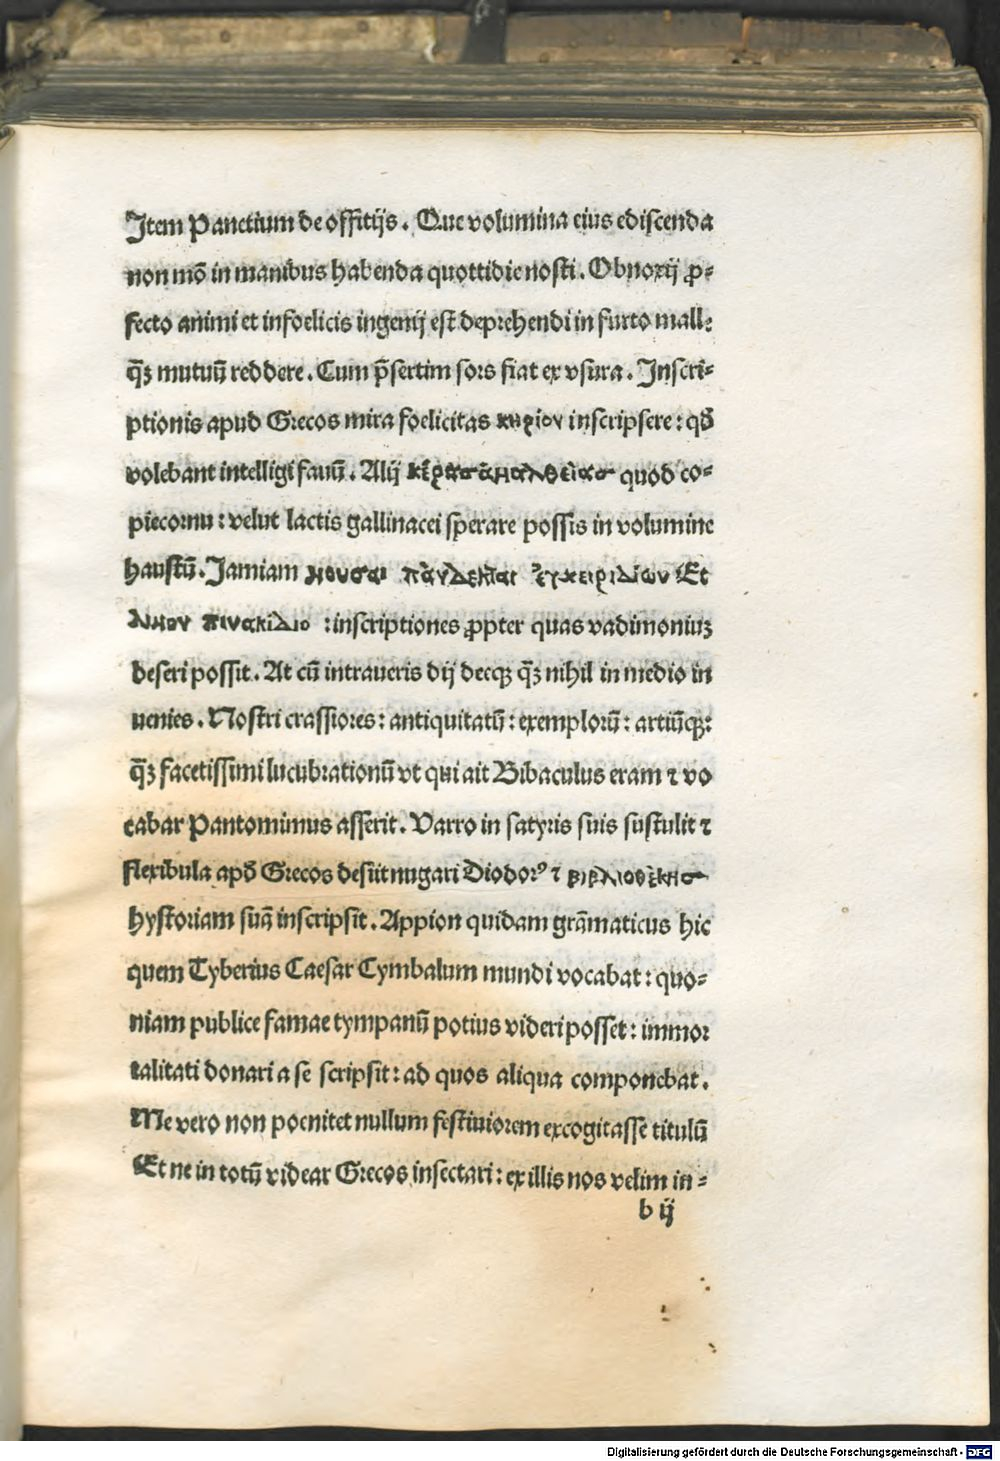 Item Panetium de offitijs. Que volumina eius ediscenda
non mō in manibus habenda quottidie nosti. Obnoxij ꝓ-
fecto animi et infoelicis ingenij est deprehendi in furto malle
q̄ꝫ mutuū reddere. Cum p̄sertim sors fiat ex vsura. Inscri-
ptionis apud Grecos mira foelicitas κηριον inscripsere: qđ
volebant intelligi fauū. Alij κέρασ ἀμαλθείασ quod co-
piecornu: velut lactis gallinacei sperare possis in volumine
haustū. Iamiam μουσαι πὰνδεκται ἐγχειριδίων Et
λιμον πινακιδιο : inscriptiones ꝓpter quas vadimoniuꝫ
deseri possit. At cū intraueris dij deeqꝫ q̄ꝫ nihil in medio in
uenies. Nostri crassiores: antiquitatū: exemplorū: artiūqꝫ:
q̄ꝫ facetissimi lucubrationū vt qui ait Bibaculus eram ⁊ vo
cabar Pantomimus asserit. Varro in satyris suis sustulit ⁊
flexibula apđ Grecos desiit nugari Diodorꝰ ⁊ βιβλιοθὲκησ
hystoriam suā inscripsit. Appion quidam grāmaticus hic
quem Tyberius Caesar Cymbalum mundi vocabat: quo-
niam publice famae tympanū potius videri posset: immor
talitati donari a se scripsit: ad quos aliqua componebat.
Me vero non poenitet nullum festiuiorem excogitasse titulū
Et ne in totū videar Grecos insectari: ex illis nos velim in-
b ij
Digitalisierung gefördert durch die Deutsche Forschungsgemeinschaft - DFG